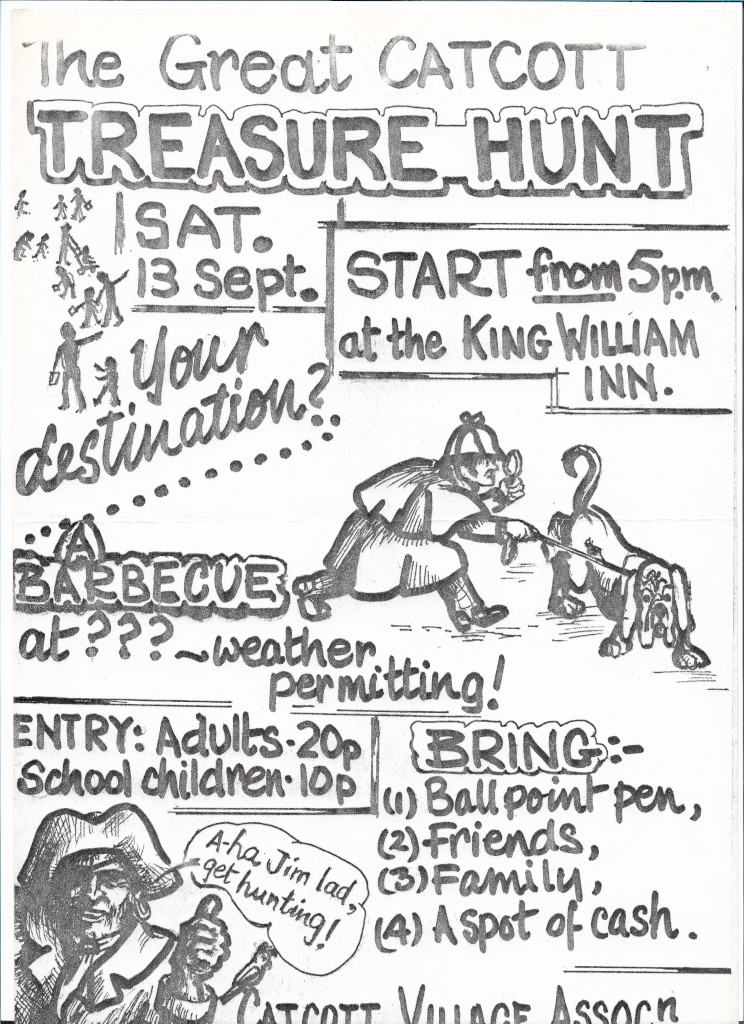 The Great CATCOTT
TREASURE HUNT
SAT.
13 Sept.
START from 5p.m.
at the KING WILLIAM
INN.
Your
destination?
A
BARBECUE
at???
~weather
permitting!
ENTRY: Adults·20p
School children·10p
BRING:-
(1) Ball point pen,
(2) Friends,
(3) Family,
(4) A spot of cash.
A-ha, Jim lad,
get hunting!
CATCOTT VILLAGE ASSOCN